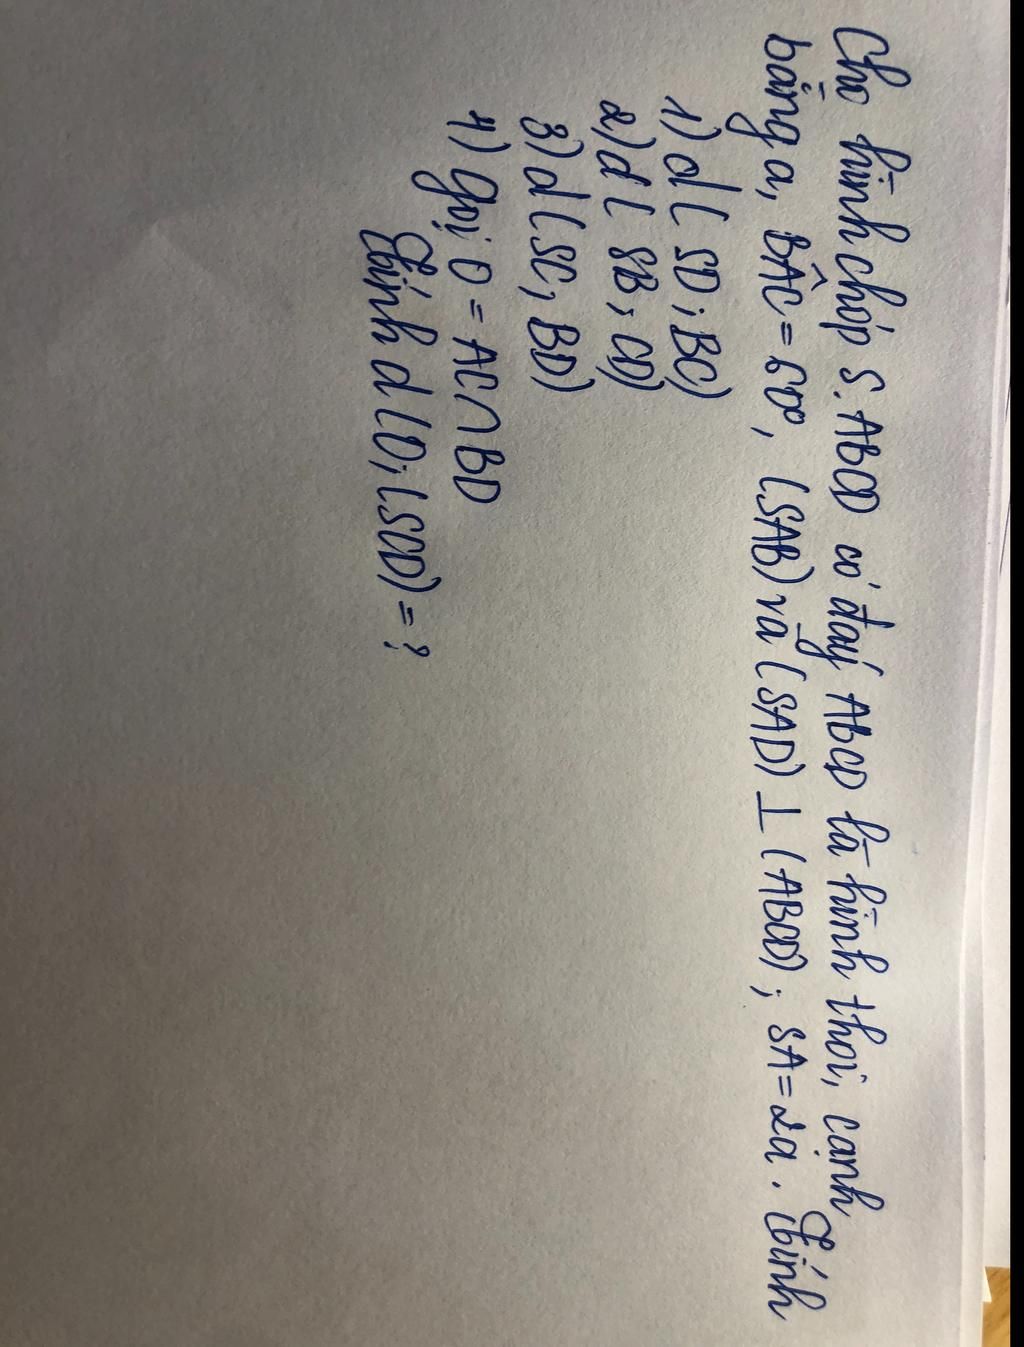 Cho hình chóp S.ABCD có đáy ABCD là hình thoi, cạnh
bằng a, BÂC = 60°, (SAB) và (SAD) ⊥ (ABCD); SA = 2a. Tính
1) d(SD; BC)
2) d(SB; CD)
3) d(SC; BD)
4) Gọi O = AC ∩ BD
Tính d(O; (SCD) = ?